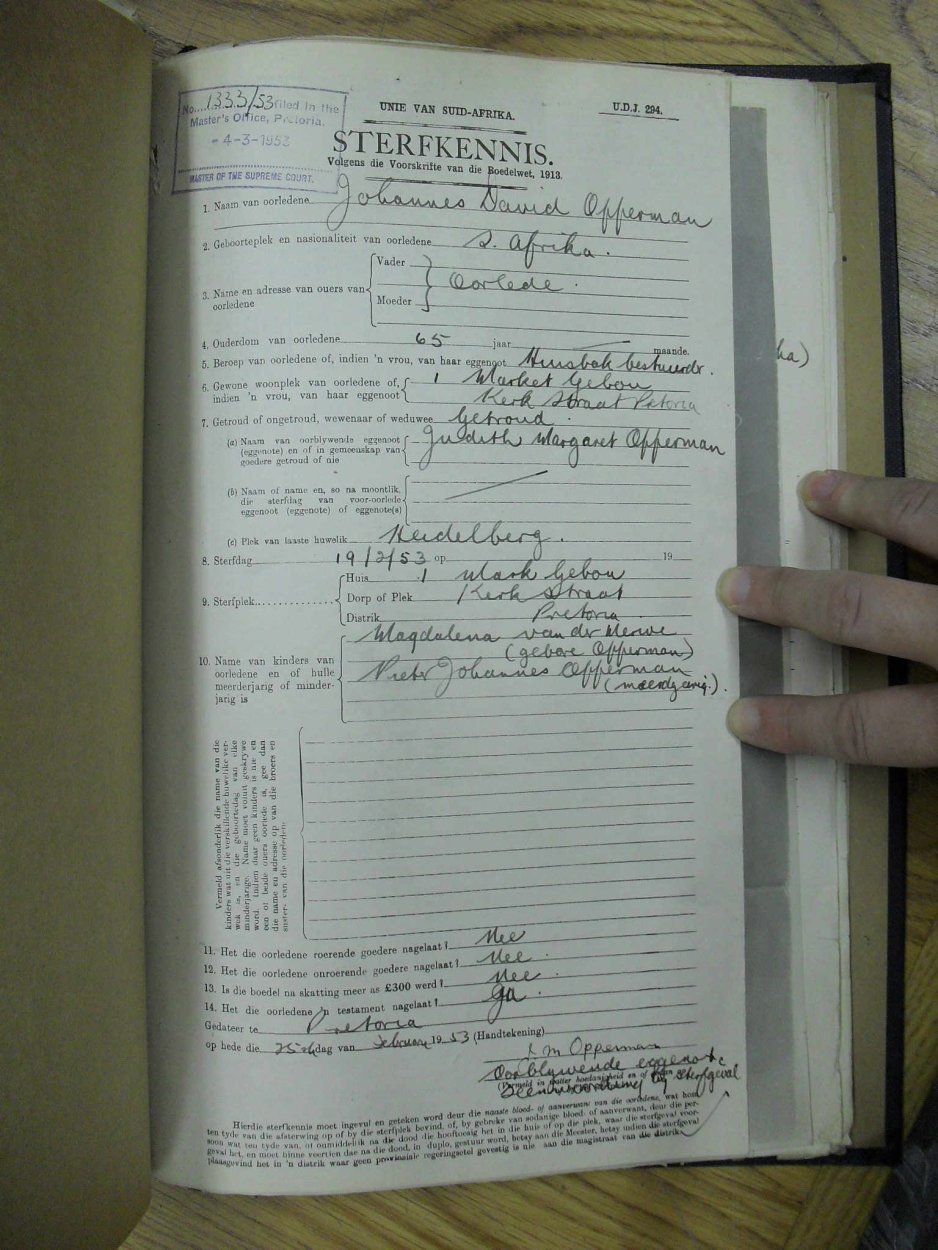 No. 1333/53 filed in the
Master's Office, Pretoria.
-4-3-1953
MASTER OF THE SUPREME COURT.
UNIE VAN SUID-AFRIKA.
U.D.J. 294.
STERFKENNIS.
Volgens die Voorskrifte van die Boedelwet, 1913.
1. Naam van oorledene Johannes David Opperman
2. Geboorteplek en nasionaliteit van oorledene S. Afrika.
3. Name en adresse van ouers van oorledene
Vader
Oorlede.
Moeder
4. Ouderdom van oorledene 65 jaar maande.
5. Beroep van oorledene of, indien 'n vrou, van haar eggenoot Huisbok bestuurdr.
6. Gewone woonplek van oorledene of, 1 Market Gebou
indien 'n vrou, van haar eggenoot Kerk Straat Pretoria
7. Getroud of ongetroud, wewenaar of weduwee Getroud.
(a) Naam van oorblywende eggenoot Judith Margaret Opperman
(eggenote) en of in gemeenskap van
goedere getroud of nie
(b) Naam of name en, so na moontlik,
die sterfdag van voor-oorlede
eggenoot (eggenote) of eggenote(s)
(c) Plek van laaste huwelik Heidelberg.
8. Sterfdag 19/2/53 op 19
9. Sterfplek
Huis 1 Mark Gebou
Dorp of Plek Kerk Straat
Distrik Pretoria
Magdalena van der Merwe
(gebore Opperman)
10. Name van kinders van
oorledene en of hulle Pieter Johannes Opperman
meerderjarig of minder- (meerdjarig.).
jarig is
Vermeld afsonderlik die name van die
kinders wat uit die verskillende huwelike ver-
wek is, en die geboortedag van elke
minderjarige. Name moet voluit geskrywe
word. Indien daar geen kinders is nie en
een of beide ouers oorlede is, gee dan
die name en adresse op van die broers en
susters van die oorledene.
11. Het die oorledene roerende goedere nagelaat? Nee
12. Het die oorledene onroerende goedere nagelaat? Nee.
13. Is die boedel na skatting meer as £300 werd? Nee.
14. Het die oorledene 'n testament nagelaat? Ja.
Gedateer te Pretoria
op hede die 25ste dag van Februarie 19 53 (Handtekening)
J M Opperman
Oorblywende eggenote
(Vermeld in watter hoedanigheid en of
teenwoordig by sterfgeval
Hierdie sterfkennis moet ingevul en geteken word deur die naaste bloed- of aanverwant van die oorledene, wat hom
ten tyde van die afsterwing op of by die sterfplek bevind, of, by gebreke van sodanige bloed- of aanverwant, deur die per-
soon wat ten tyde van, of onmiddellik na die dood die hooftoesig het in die huis of op die plek, waar die sterfgeval voor-
geval het, en moet binne veertien dae na die dood, in duplo, gestuur word, hetsy aan die Meester, hetsy indien die sterfgeval
plaasgevind het in 'n distrik waar geen provinsiale regeringsetel gevestig is nie aan die magistraat van die distrik.